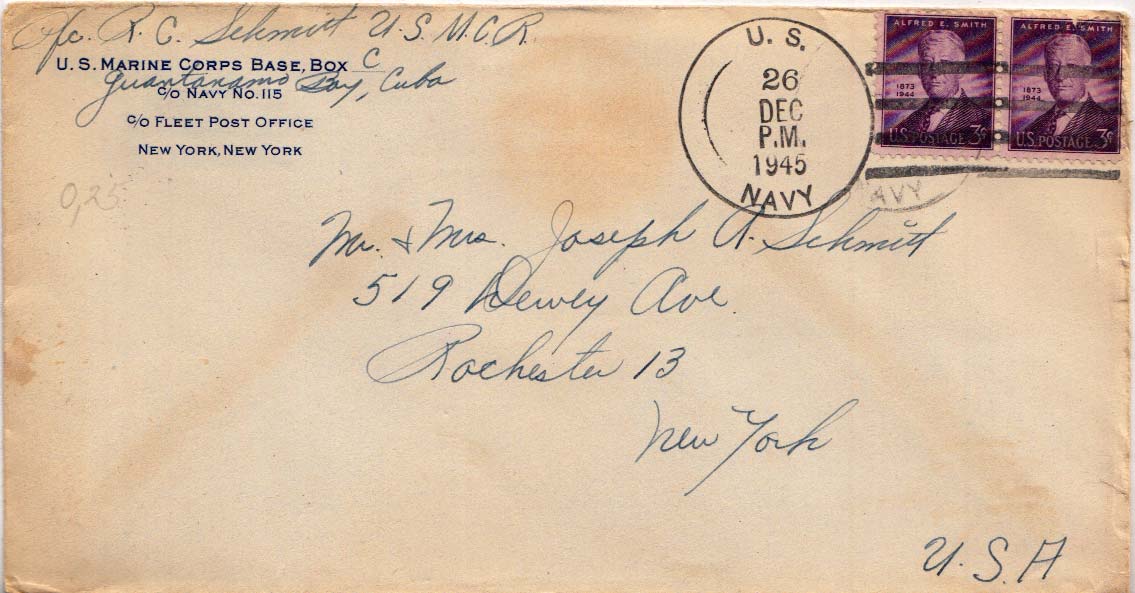 Pfc. R. C. Schmitt U.S.M.C.R.
U.S. MARINE CORPS BASE, BOX C
Guantanamo Bay, Cuba
C/O NAVY NO. 115
C/O FLEET POST OFFICE
NEW YORK, NEW YORK
0,25
U. S.
26
DEC
P.M.
1945
NAVY
AVY
ALFRED E. SMITH
1873
1944
U.S. POSTAGE 3¢
ALFRED E. SMITH
1873
1944
U.S. POSTAGE 3¢
Mr. & Mrs. Joseph A. Schmitt
519 Dewey Ave
Rochester 13
New York
U.S.A